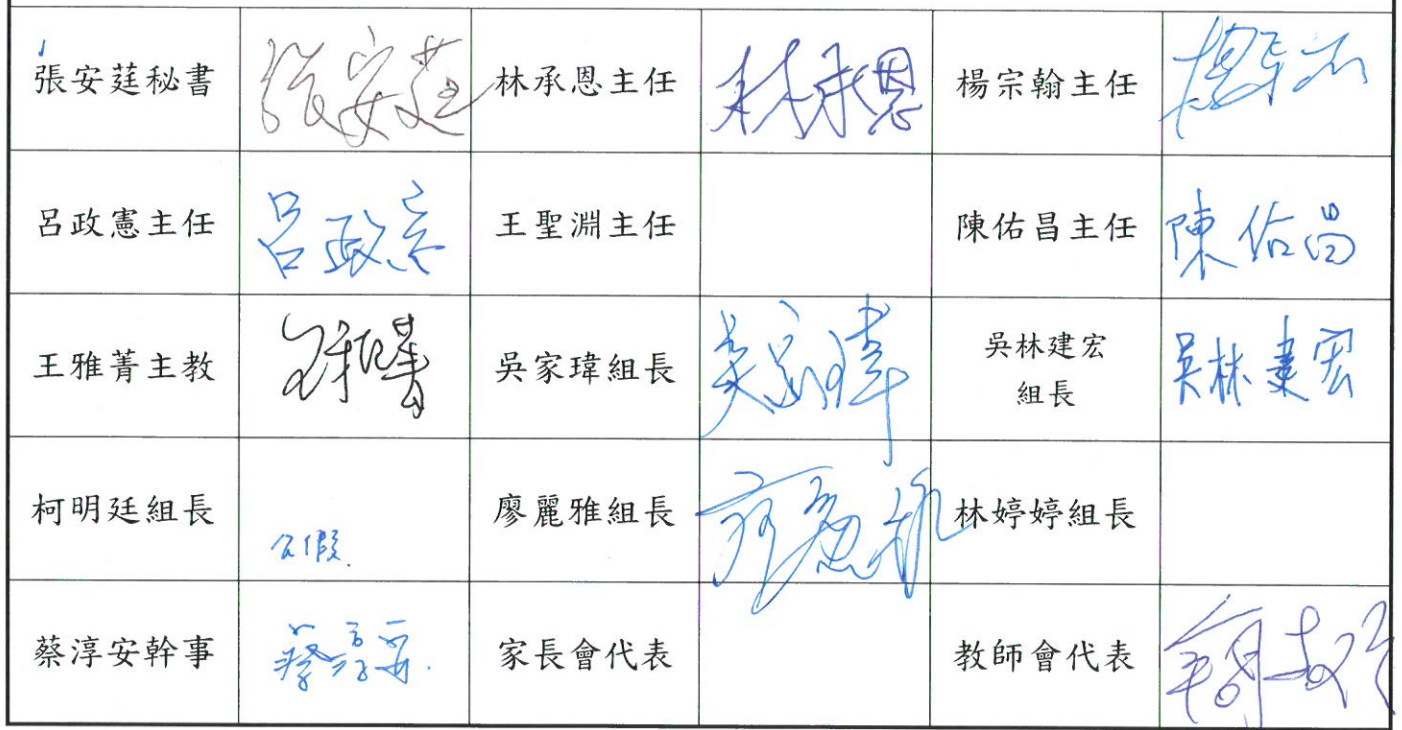 張安莛秘書 張安莛 林承恩主任 林承恩 楊宗翰主任
呂政憲主任 呂政憲 王聖淵主任 陳佑昌主任 陳佑昌
王雅菁主教 王雅菁 吳家瑋組長 吳家瑋 吳林建宏 吳林建宏
組長
柯明廷組長 公假 廖麗雅組長 廖麗雅 林婷婷組長
蔡淳安幹事 蔡淳安 家長會代表 教師會代表